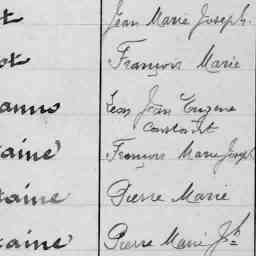 t Jean Marie Joseph.
ot François Marie
anno Léon Jean Eugène
Constant
taine François Marie Joseph
taine Pierre Marie
taine Pierre Marie Jh